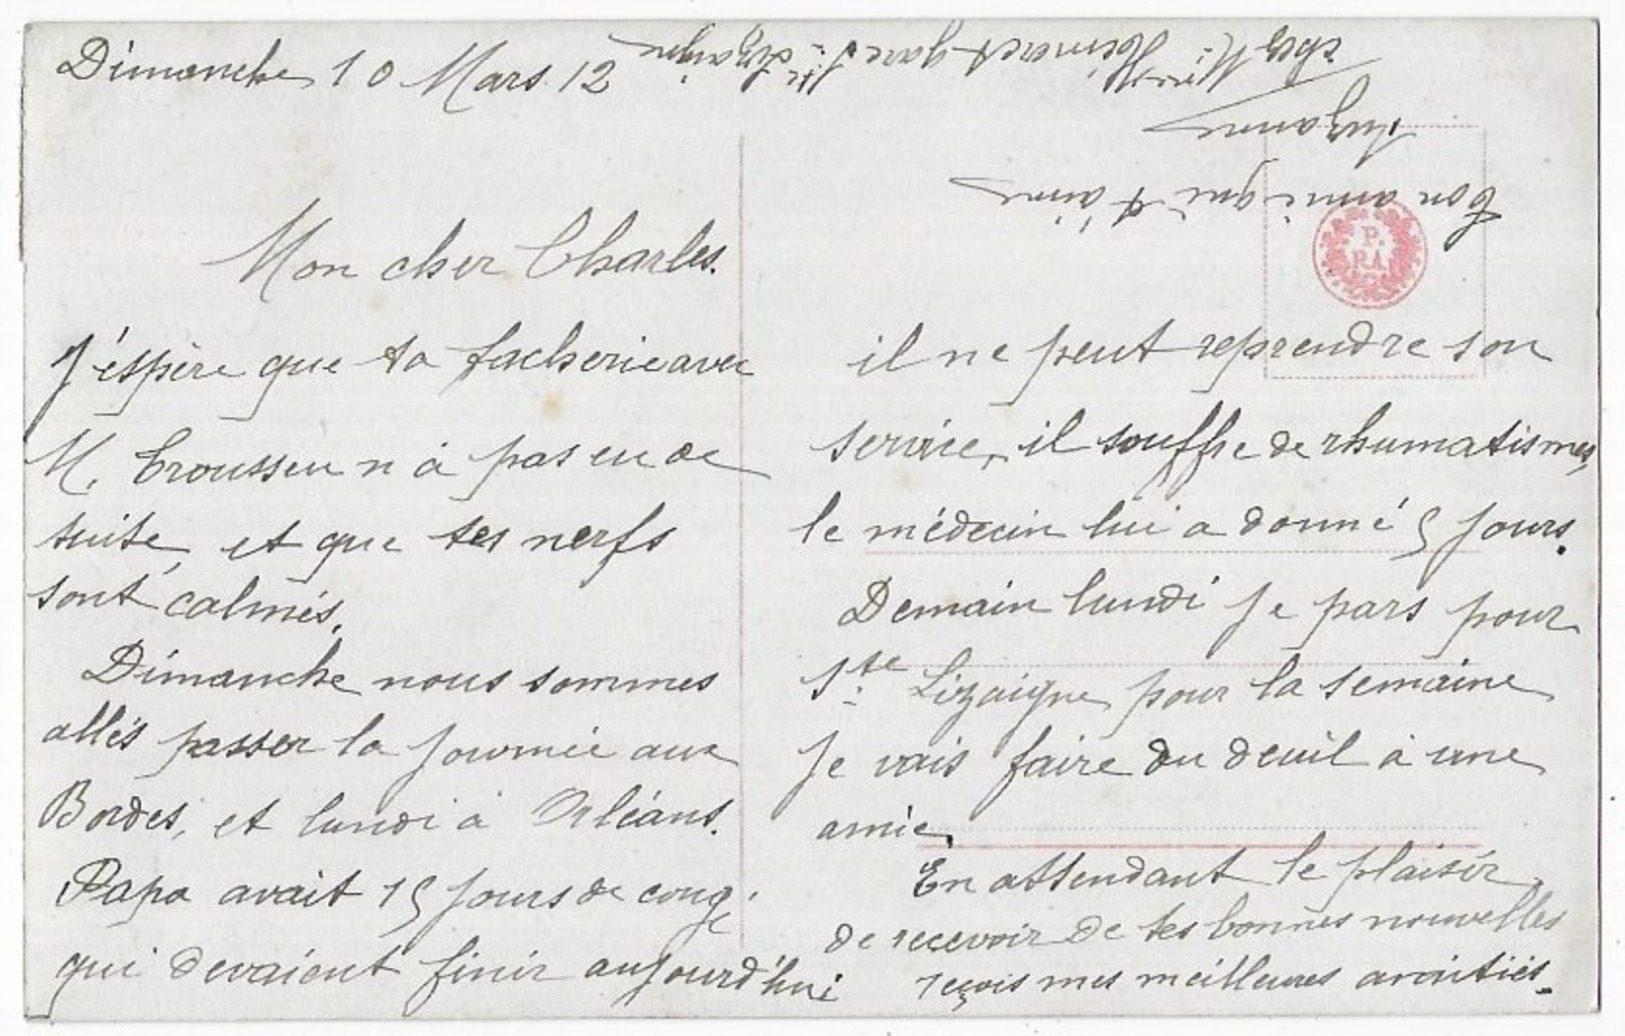 Dimanche 10 Mars. 12
Mon cher Charles.
J'éspère que ta facherie avec
M. Trousseu n'a pas eu de
suite, et que tes nerfs
sont calmés.
Dimanche nous sommes
allés passer la journée aux
Bordes, et lundi à Orléans.
Papa avait 15 jours de congé
qui devaient finir aujourd'hui
il ne peut reprendre son
service, il souffre de rhumatismes,
le médecin lui a donné 5 jours.
Demain lundi je pars pour
Ste Lizaigne pour la semaine
Je vais faire du deuil à une
amie.
En attendant le plaisir
de recevoir de tes bonnes nouvelles
reçois mes meilleures amitiés.
Ton amie qui t'aime
Suzanne
chez Mme gare Ste Lizaigne
P.
R.A.